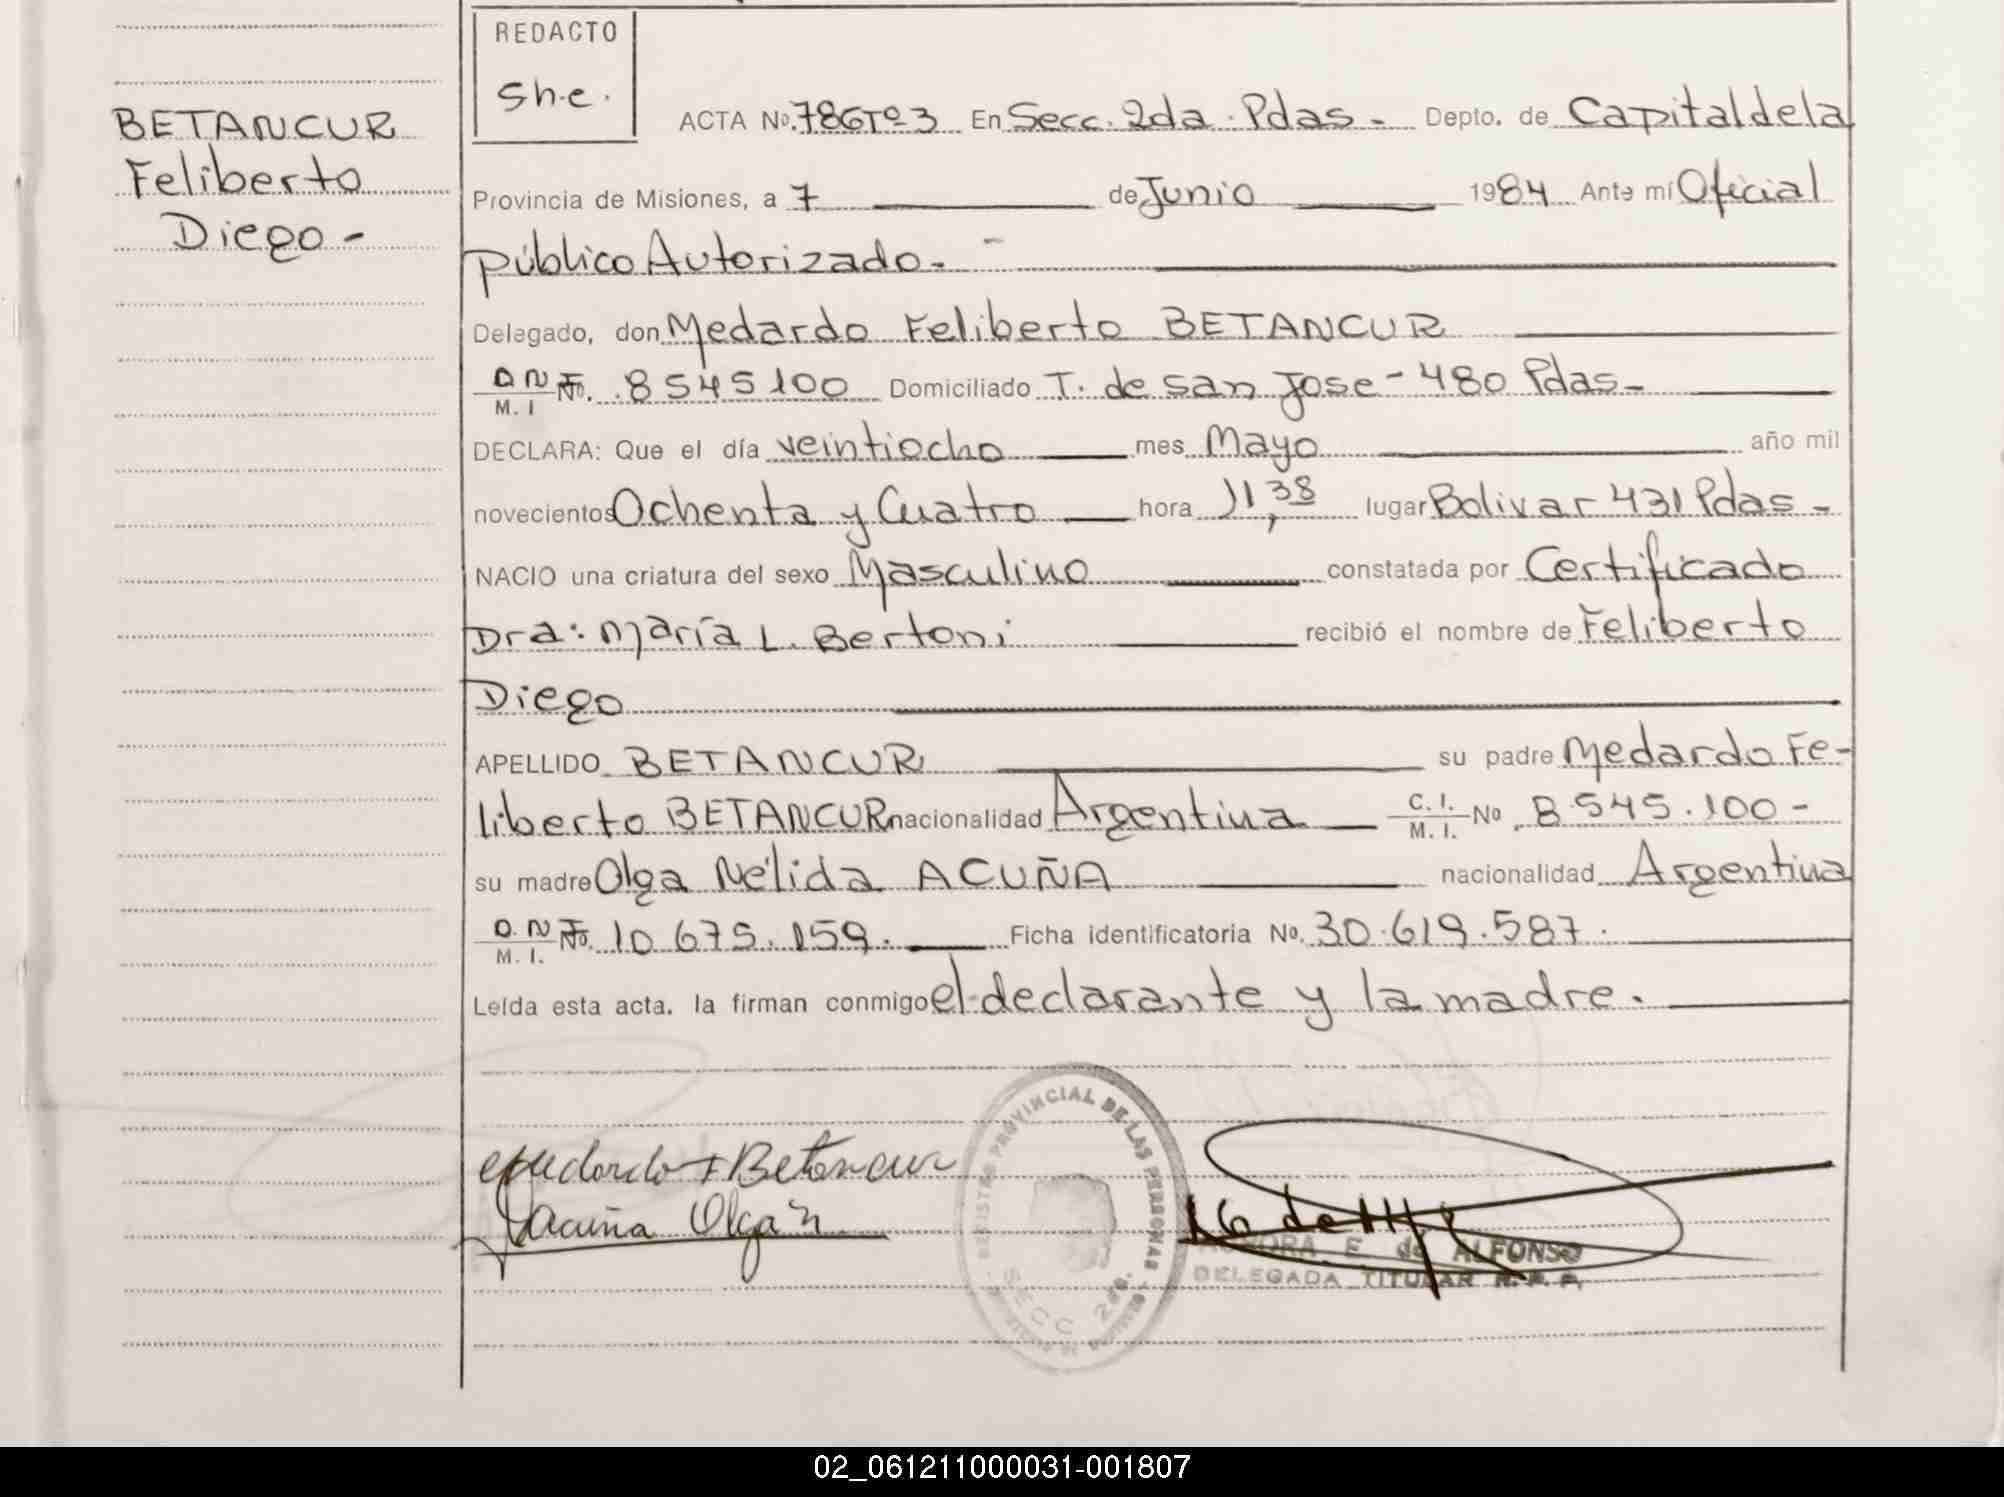 REDACTO
Sh.e.
BETANCUR
Feliberto
Diego -
ACTA No. 786 Tº 3 En Secc. 2da. Pdas - Depto. de Capital de la
Provincia de Misiones, a 7 de Junio 1984 Ante mí Oficial
público Autorizado. -
Delegado, don Medardo Feliberto BETANCUR
D N I No. 8545100 Domiciliado T. de San Jose - 480 Pdas -
M. I
DECLARA: Que el día veintiocho mes Mayo año mil
novecientos Ochenta y Cuatro hora 11,38 lugar Bolivar 431 Pdas -
NACIO una criatura del sexo Masculino constatada por Certificado
Dra: María L. Bertoni recibió el nombre de Feliberto
Diego
APELLIDO BETANCUR su padre Medardo Fe-
liberto BETANCUR nacionalidad Argentina C. I. No 8.545.100 -
M. I.
su madre Olga Nélida ACUÑA nacionalidad Argentina
D. N I No. 10.675.159. Ficha identificatoria No. 30.619.587.
M. I.
Leída esta acta. la firman conmigo el declarante y la madre.
REGISTRO PROVINCIAL DE LAS PERSONAS
SECC 2da.
Medardo F Betancur
Acuña Olga N
E de ALFONSO
DELEGADA TITULAR R. P. P.
02_061211000031-001807